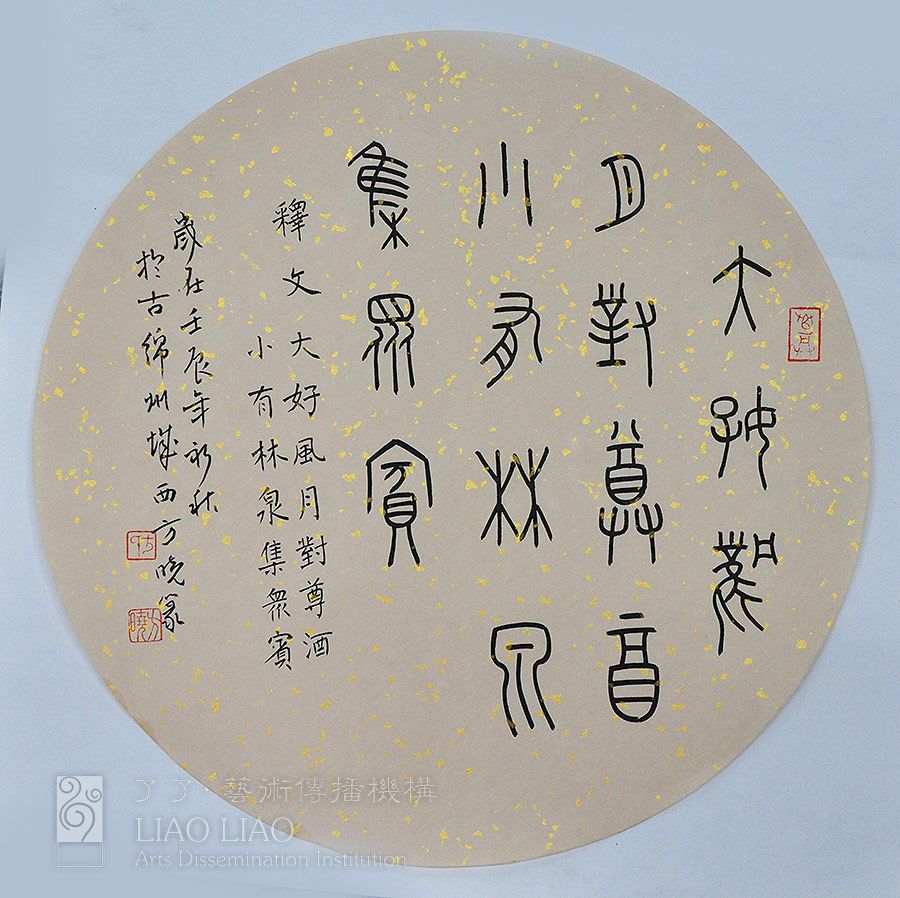 大好風
月對尊酒
小有林泉
集眾賓
釋文大好風月對尊酒
小有林泉集眾賓
歲在壬辰年初秋
於古綿州城西方曉篆
了了·藝術傳播機構
LIAO LIAO
Arts Dissemination Institution